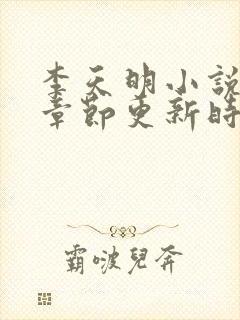 李天明小說
章節更新時
霸啵兒奔